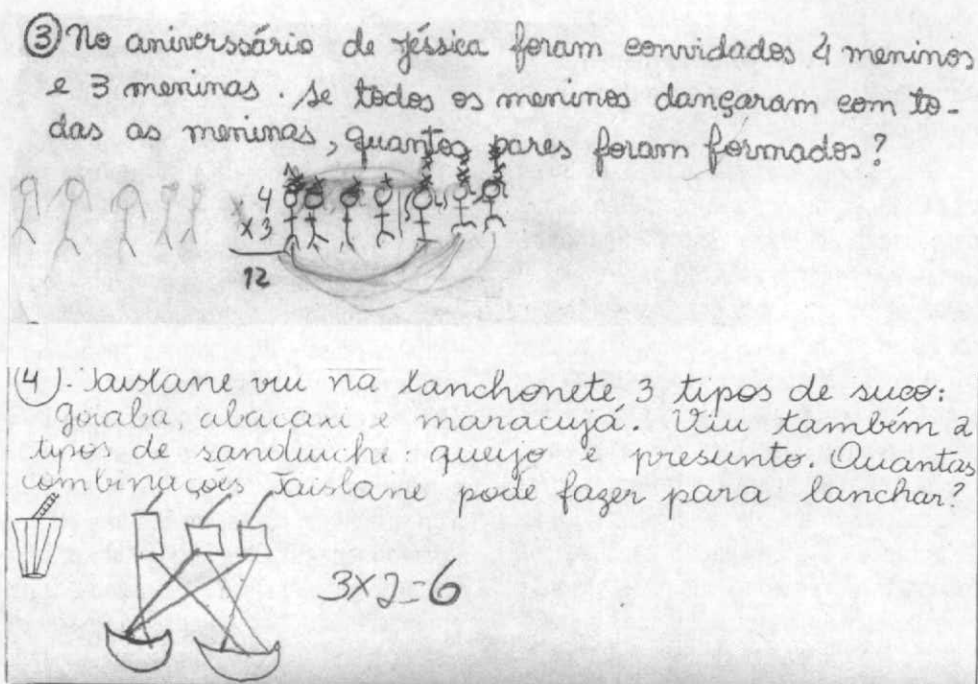 ③ No aniverssário de Jéssica foram convidados 4 meninos
e 3 meninas. Se todos os meninos dançaram com to-
das as meninas, quantos pares foram formados?
x 4
x 3
12
(4). Taislane viu na lanchonete 3 tipos de suco:
goiaba, abacaxi e maracujá. Viu também 2
tipos de sanduiche: queijo e presunto. Quantas
combinações Taislane pode fazer para lanchar?
3x2=6